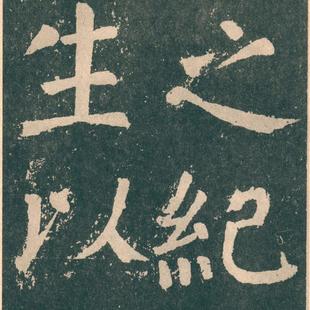 之紀
生以